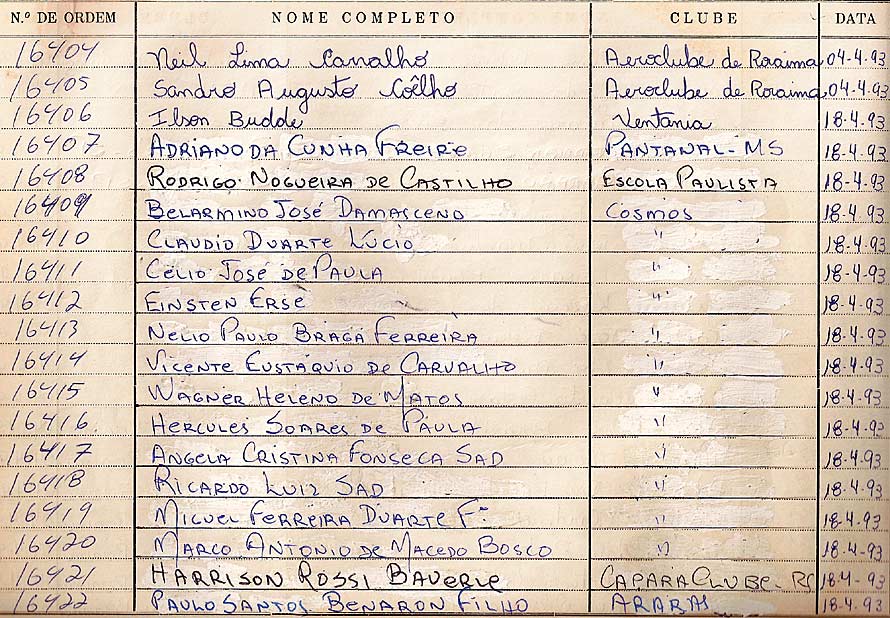 N.º DE ORDEM NOME COMPLETO CLUBE DATA
16404 Neil Lima Carvalho Aeroclube de Roraima 04-4-93
16405 Sandro Augusto Coêlho Aeroclube de Roraima 04-4-93
16406 Ilson Budde Ventania 18-4-93
16407 ADRIANO DA CUNHA FREIRE PANTANAL-MS 18-4-93
16408 RODRIGO NOGUEIRA DE CASTILHO ESCOLA PAULISTA 18-4-93
16409 BELARMINO JOSÉ DAMASCENO COSMOS 18-4-93
16410 CLAUDIO DUARTE LÚCIO " 18-4-93
16411 CÉLIO JOSÉ DE PAULA " 18-4-93
16412 EINSTEN ERSE " 18-4-93
16413 NELIO PAULO BRAGA FERREIRA " 18-4-93
16414 VICENTE EUSTÁQUIO DE CARVALHO " 18-4-93
16415 WAGNER HELENO DE MATOS " 18-4-93
16416 HERCULES SOARES DE PAULA " 18-4-93
16417 ANGELA CRISTINA FONSECA SAD " 18-4-93
16418 RICARDO LUIZ SAD " 18-4-93
16419 MIGUEL FERREIRA DUARTE Fº " 18-4-93
16420 MARCO ANTONIO DE MACEDO BOSCO " 18-4-93
16421 HARRISON ROSSI BAVERLE CAPARA CLUBE 18-4-93
16422 PAULO SANTOS BENARON FILHO ARARAS 18-4-93